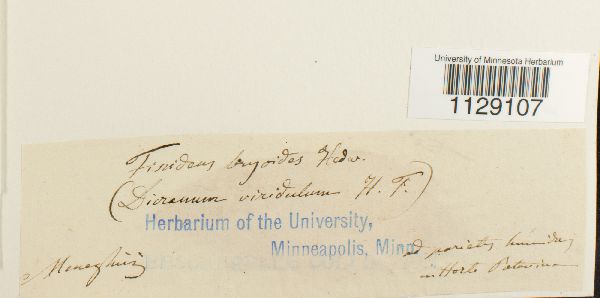 University of Minnesota Herbarium
1129107
Fissidens bryoides Hedw.
(Dicranum viridulum H. F.)
Herbarium of the University,
Minneapolis, Minn
ad parietes humidos
in Horto Patavino
Meneghini